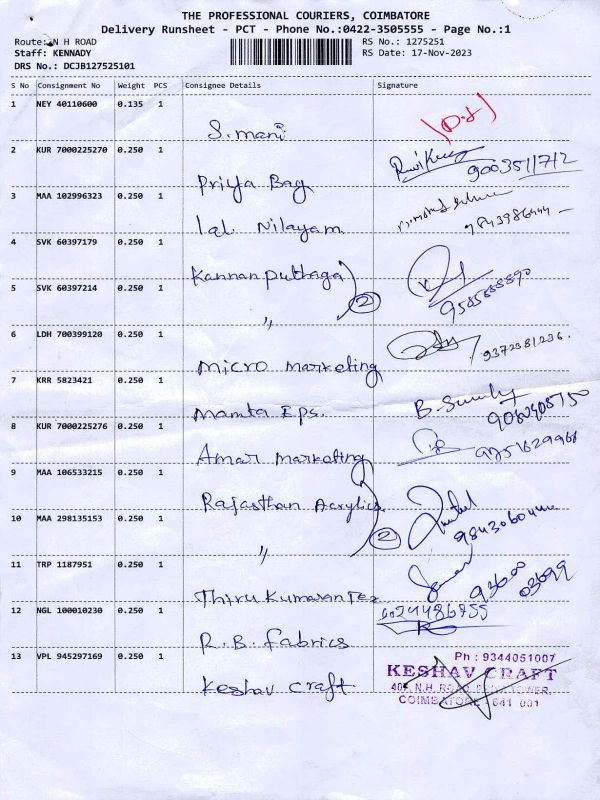 THE PROFESSIONAL COURIERS, COIMBATORE
Delivery Runsheet - PCT - Phone No.:0422-3505555 - Page No.:1
Route: N H ROAD RS No.: 1275251
Staff: KENNADY RS Date: 17-Nov-2023
DRS No.: DCJB127525101
S No Consignment No Weight PCS Consignee Details Signature
1 NEY 40110600 0.135 1
S. mani
2 KUR 7000225270 0.250 1
Priya Bag 9003511712
3 MAA 102996323 0.250 1
Lal Nilayam
4 SVK 60397179 0.250 1
Kannan Puthaga
5 SVK 60397214 0.250 1
2
〃
6 LDH 700399120 0.250 1
micro marketing 9372381236.
7 KRR 5823421 0.250 1
Mamta Eps.
8 KUR 7000225276 0.250 1
Amar marketing 9751629968
9 MAA 106533215 0.250 1
Rajasthan Acrylics
10 MAA 298135153 0.250 1
2
〃
11 TRP 1187951 0.250 1
Thiru Kumaran Tex 93600 03699
12 NGL 100010230 0.250 1
R.B. Fabrics
13 VPL 945297169 0.250 1
Keshav craft
Ph : 9344051007
KESHAV CRAFT
N.H. ROAD, TOWER,
COIMBATORE - 641 001